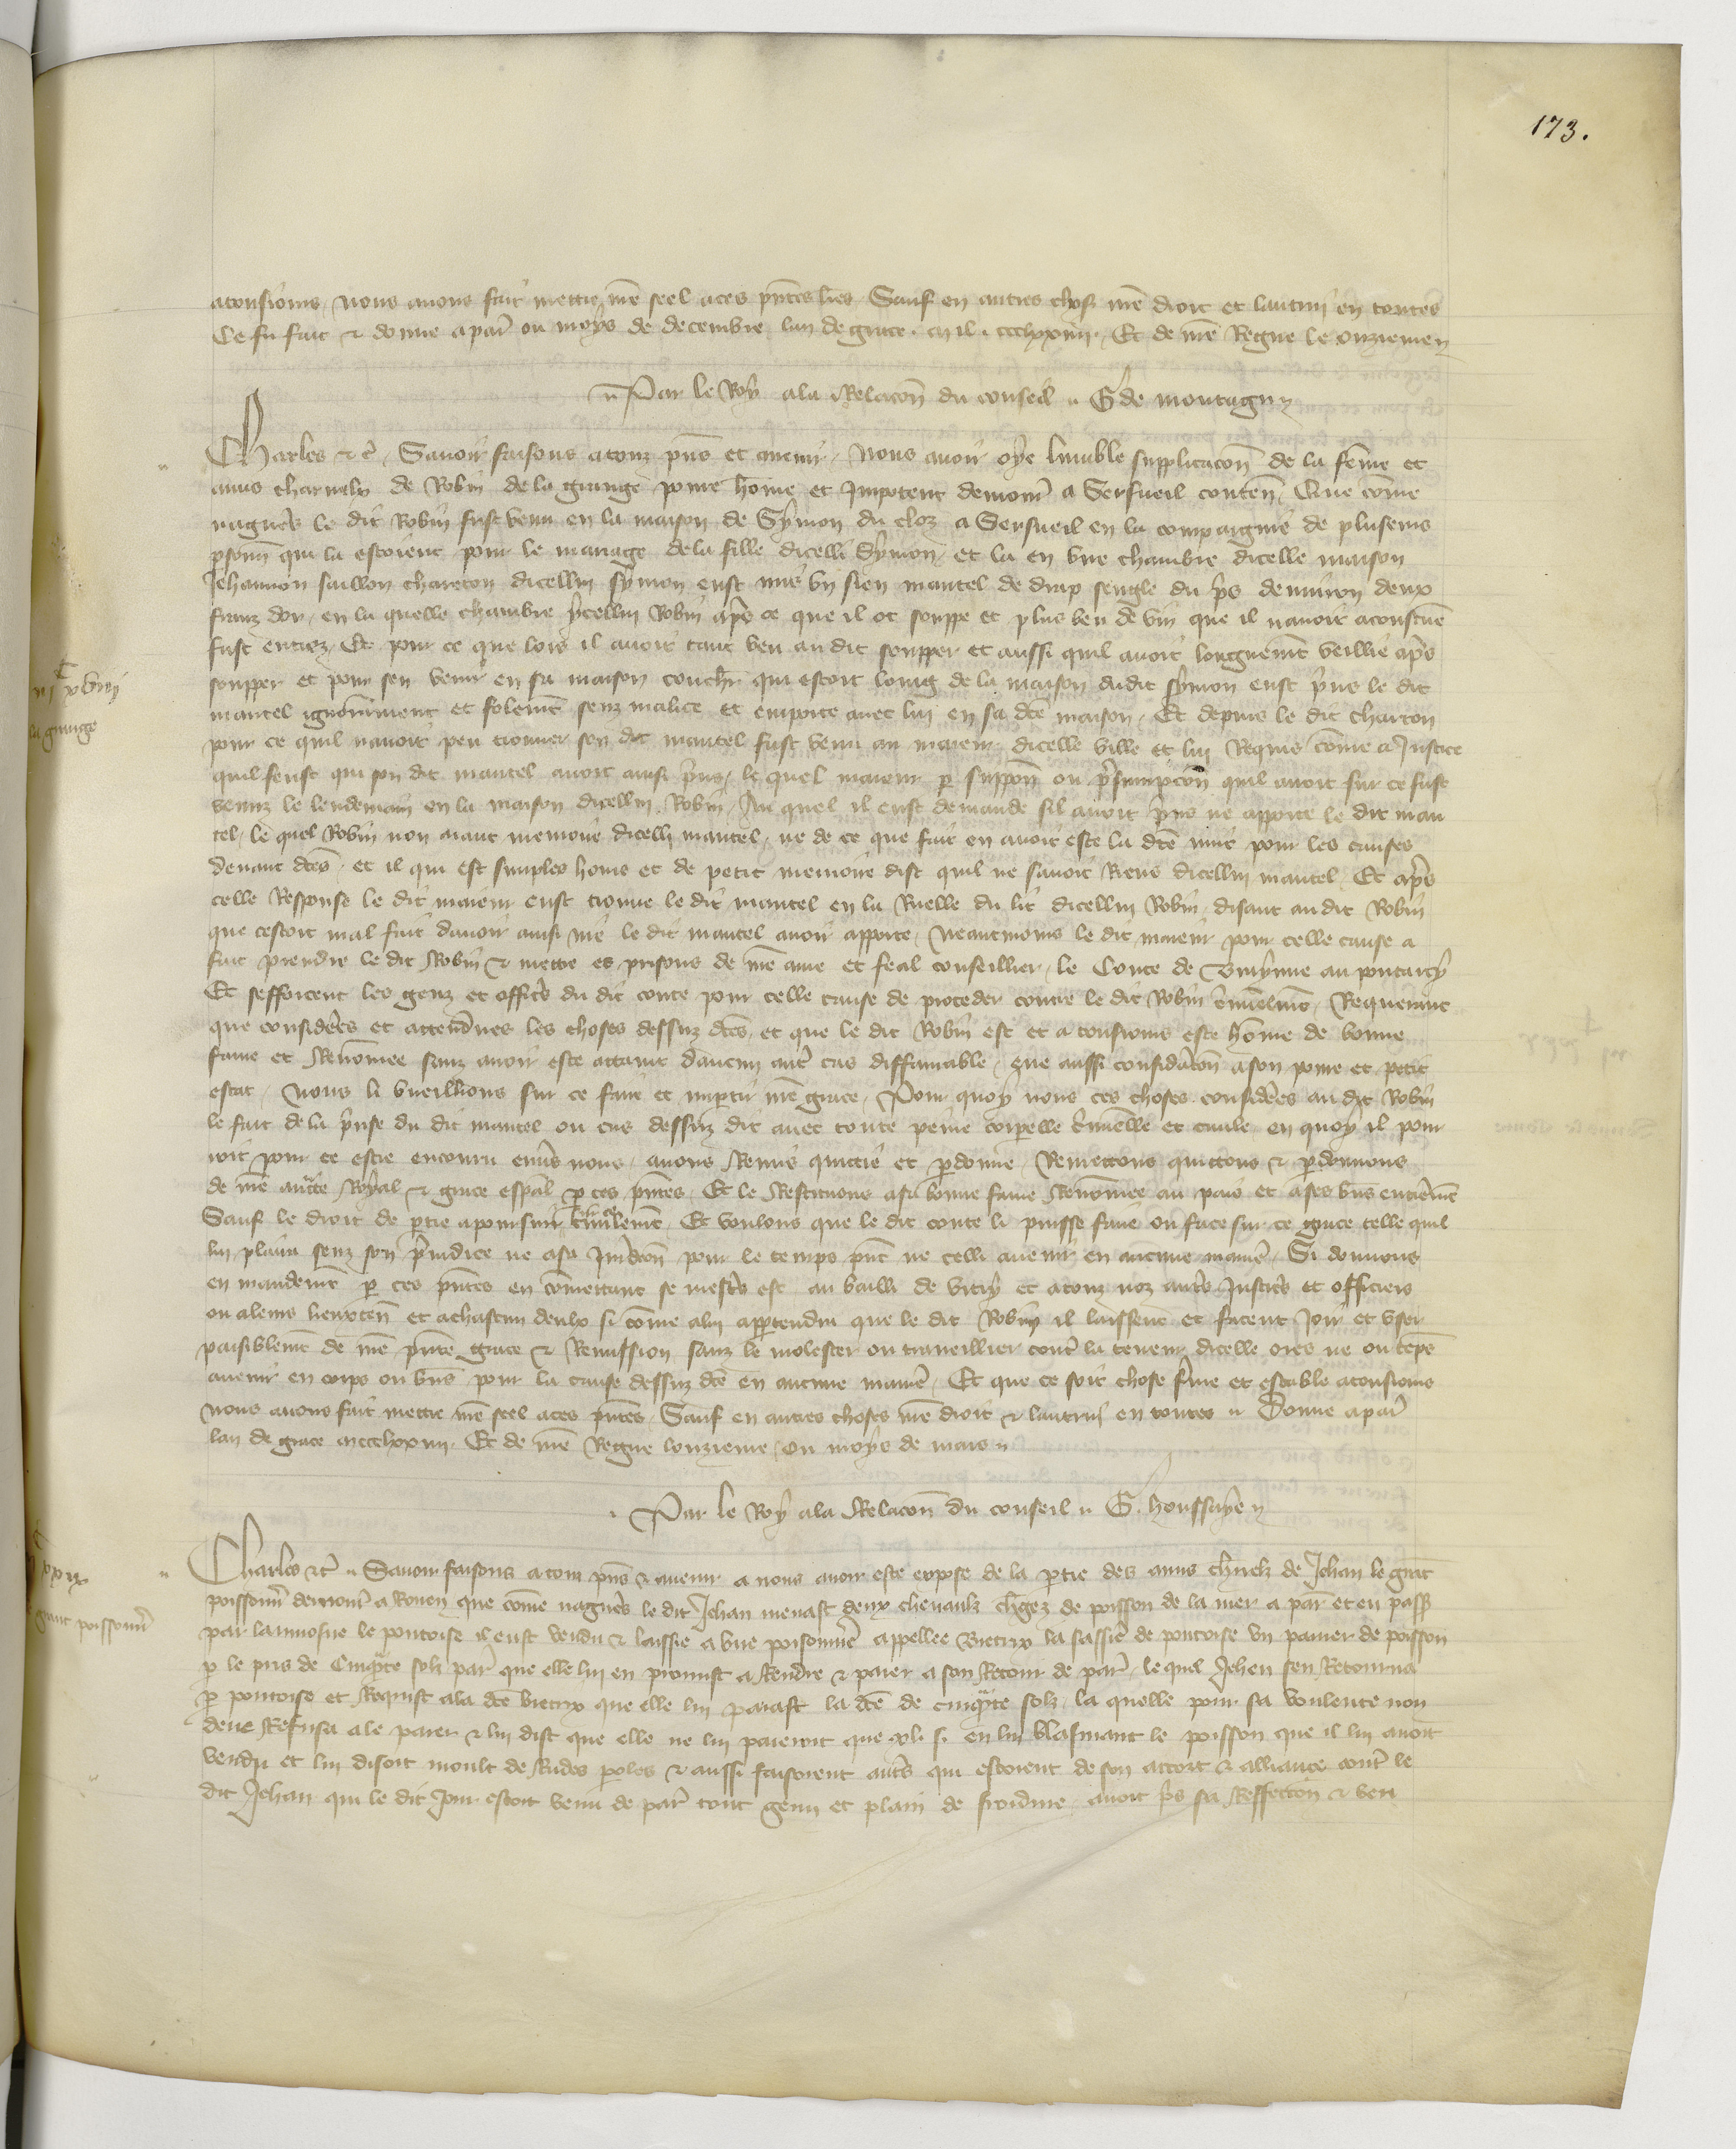 173.
atousiours nous auons fait mettre nre seel a ces pntes lres Sauf en autres choses nre droit et lautrui en toutes
Ce fu fait & donne a par ou moys de decembre lan de grace mil ccclxxiiii Et de nre Regne le onzieme
Par le Roy a la Relacon du conseil G de montagu
Charles &c Sauoir faisons a touz pns et auenir Nous auoir oye lumble supplicacon de la feme et
amis charnelx de Robin de la grange poure home et Impotent demour a Serfueil conten Que come
nagueres le dit Robin fust venu en la maison de Symon du cloz a Serfueil en la compaignie de pluseurs
psonn qui la estoient pour le mariage de la fille dicelli Symon et la en vne chambre dicelle maison
Jehannon saillon chareton dicellui symon eust mis vn sien mantel de drap sengle du pris denuiron deux
franz dor en la quelle chambre ycellui Robin apres ce que il ot souppe et plus beu de vin que il nauoit acoustume
fust entrez Et pour ce que lors il auoit tant beu au dit soupper et aussi quil auoit longuemt veillie apres
soupper et pour sen venir en sa maison couchr qui estoit loing de la maison dudit symon eust pris le dit
mantel ignoramment et folemt senz malice et emporte auec lui en sa dte maison Et depuis le dit charton
pour ce quil nauoit peu trouuer son dit mantel fust venu au maieur dicelle ville et lui Requis come a Justice
quil sceust qui son dit mantel auoit ainsi pris le quel maieur p suppon ou presumpcon quil auoit sur ce fust
venuz le lendemain en la maison dicellui Robin Au quel il eust demande sil auoit pris ne apporte le dit man
tel le quel Robin non aiant memoire dicelli mantel ne de ce que fait en auoit este la dte nuit pour les causes
deuant dtes et il qui est simples homs et de petit memoire dist quil ne sauoit Riens dicellui mantel Et apres
celle Response le dit maieur eust trouue le dit mantel en la Ruelle du lit dicellui Robin disant au dit Robin
que cestoit mal fait dauoir ainsi nie le dit mantel auoir apporte Neantmoins le dit maieur pour celle cause a
fait prendre le dit Robin & mettre es prisons de nre ame et feal conseillier le Conte de Brayne au pontarcy
Et sefforcent les genz et offics du dit conte pour celle cause de proceder contre le dit Robin criminelmt Requerant
que considerees et attendues les choses dessuz dtes et que le dit Robin est et a tousiours este home de bonne
fame et Renomee sanz auoir este attaint daucun autre cas diffamable que aussi consideraton a son poure et petit
estat Nous li vueillions sur ce faire et impartir nre grace Pour quoy nous ces choses considerees au dit Robin
le fait de la prise du dit mantel ou cas dessuz dit auec toute peine corporelle criminelle et ciuile en quoy il pour
roit pour ce estre encouru enuers nous auons Remis quittie et pdonne Remettons quittons & pdonnons
de nre aucte Royal & grace espal p ces pntes Et le Restituons a sa bonne fame Renomee au pais et a ses bns entieremt
Sauf le droit de ptie a poursuir ciuilemt Et voulons que le dit conte li puisse faire ou face sur ce grace telle quil
lui plaira senz son preiudice ne a sa Jurdicon pour le temps pnt ne celli auenir en aucune maniere Si donnons
en mandemt p ces pntes en comettant se mestrs est au bailli de vitry et a touz noz autres Justics et officiers
ou a leurs lieuxten et a chascun deulx si come a lui appartendra que le dit Robin il laissent et facent Joir et vser
paisiblemt de nre pnte grace & Remission sanz le molester ou trauaillier contre la teneur dicelle ores ne ou teps
auenir en corps ou bns pour la cause dessuz dte en aucune maniere Et que ce soit chose ferme et estable a tousiours
nous auons fait mettre nre seel a ces pntes Sauf en autres choses nre droit & lautrui en toutes Donne a par
lan de grace mccclxxiiii Et de nre Regne lonzieme ou moys de mars
Par le Roy a la Relacon du conseil G. houssaye
Charles &c Sauoir faisons a touz pns & auenir a nous auoir este expose de la ptie des amis charnelz de Jehan le grant
poissonnr demour a Rouen que come nagueres le dit Jehan menast deux cheuaulx chgez de poisson de la mer a par et en pass
par lamosne le pontoise il eust vendu & laissie a vne poisonniere appellee Bietrix la sassiere de pontoise vn panier de poisson
p le pris de Cinqte solz par que elle lui en promist a Rendre & paier a son Retour de par le quel Jehan sen Retourna
p pontoise et Requist a la dte bietrix que elle lui paiast la dte de cinqte solz la quelle pour sa voulente non
deue Refusa a le paier & lui dist que elle ne lui paieroit que xl s. en lui blasmant le poisson que il lui auoit
vendu et lui disoit moult de Rudes paroles & aussi faisoient autres qui estoient de son accort & alliance contre le
dit Jehan qui le dit Jour estoit venu de par tout geun et plain de froidure auoit pris sa Reffeccion & beu
la grange
grant poissonnr